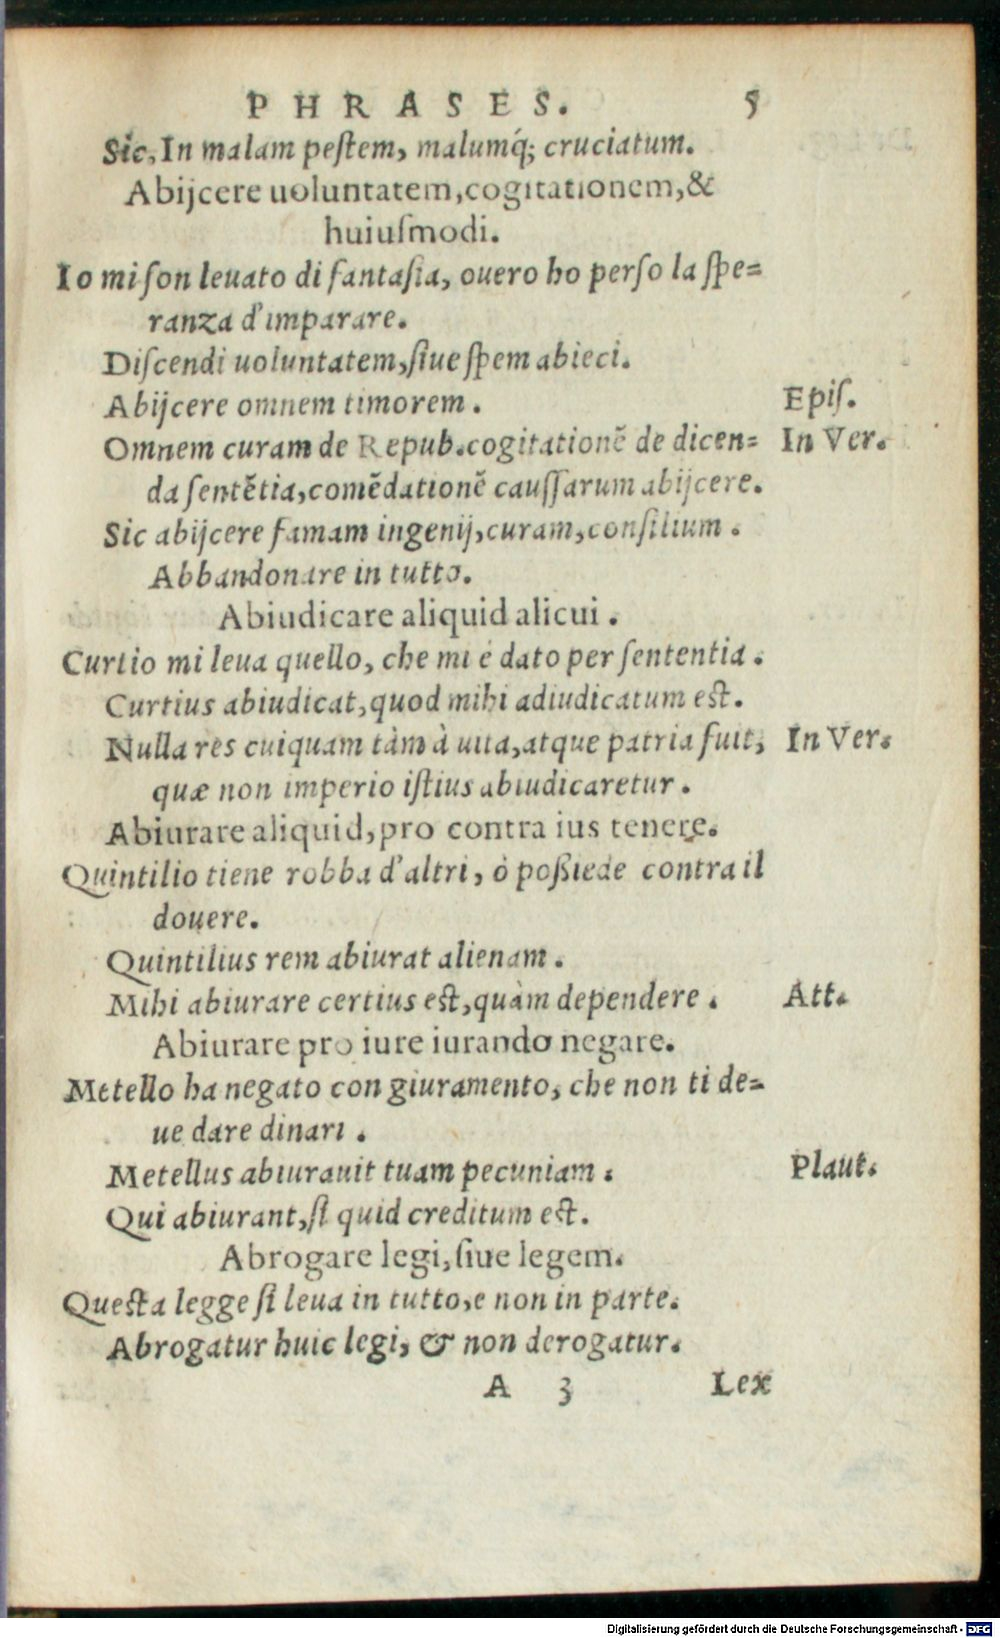 PHRASES. 5
Sic, In malam peſtem, malumq́; cruciatum.
Abijcere uoluntatem, cogitationem, &
huiuſmodi.
Io mi ſon leuato di fantaſia, ouero ho perſo la ſpe=
ranza d'imparare.
Diſcendi uoluntatem, ſiue ſpem abieci.
Abijcere omnem timorem. Epiſ.
Omnem curam de Repub. cogitationẽ de dicen= In Ver.
da ſentẽtia, comẽdationẽ cauſſarum abijcere.
Sic abijcere famam ingenij, curam, conſilium.
Abbandonare in tutto.
Abiudicare aliquid alicui.
Curtio mi leua quello, che mi è dato per ſententia.
Curtius abiudicat, quod mihi adiudicatum eſt.
Nulla res cuiquam tàm à uita, atque patria fuit, In Ver.
quæ non imperio iſtius abiudicaretur.
Abiurare aliquid, pro contra ius tenere.
Quintilio tiene robba d'altri, ò poßiede contra il
douere.
Quintilius rem abiurat alienam.
Mihi abiurare certius eſt, quàm dependere. Att.
Abiurare pro iure iurando negare.
Metello ha negato con giuramento, che non ti de=
ue dare dinari.
Metellus abiurauit tuam pecuniam. Plaut.
Qui abiurant, ſi quid creditum eſt.
Abrogare legi, ſiue legem.
Queſta legge ſi leua in tutto, e non in parte.
Abrogatur huic legi, & non derogatur.
A 3 Lex
Digitalisierung gefördert durch die Deutsche Forschungsgemeinschaft - DFG